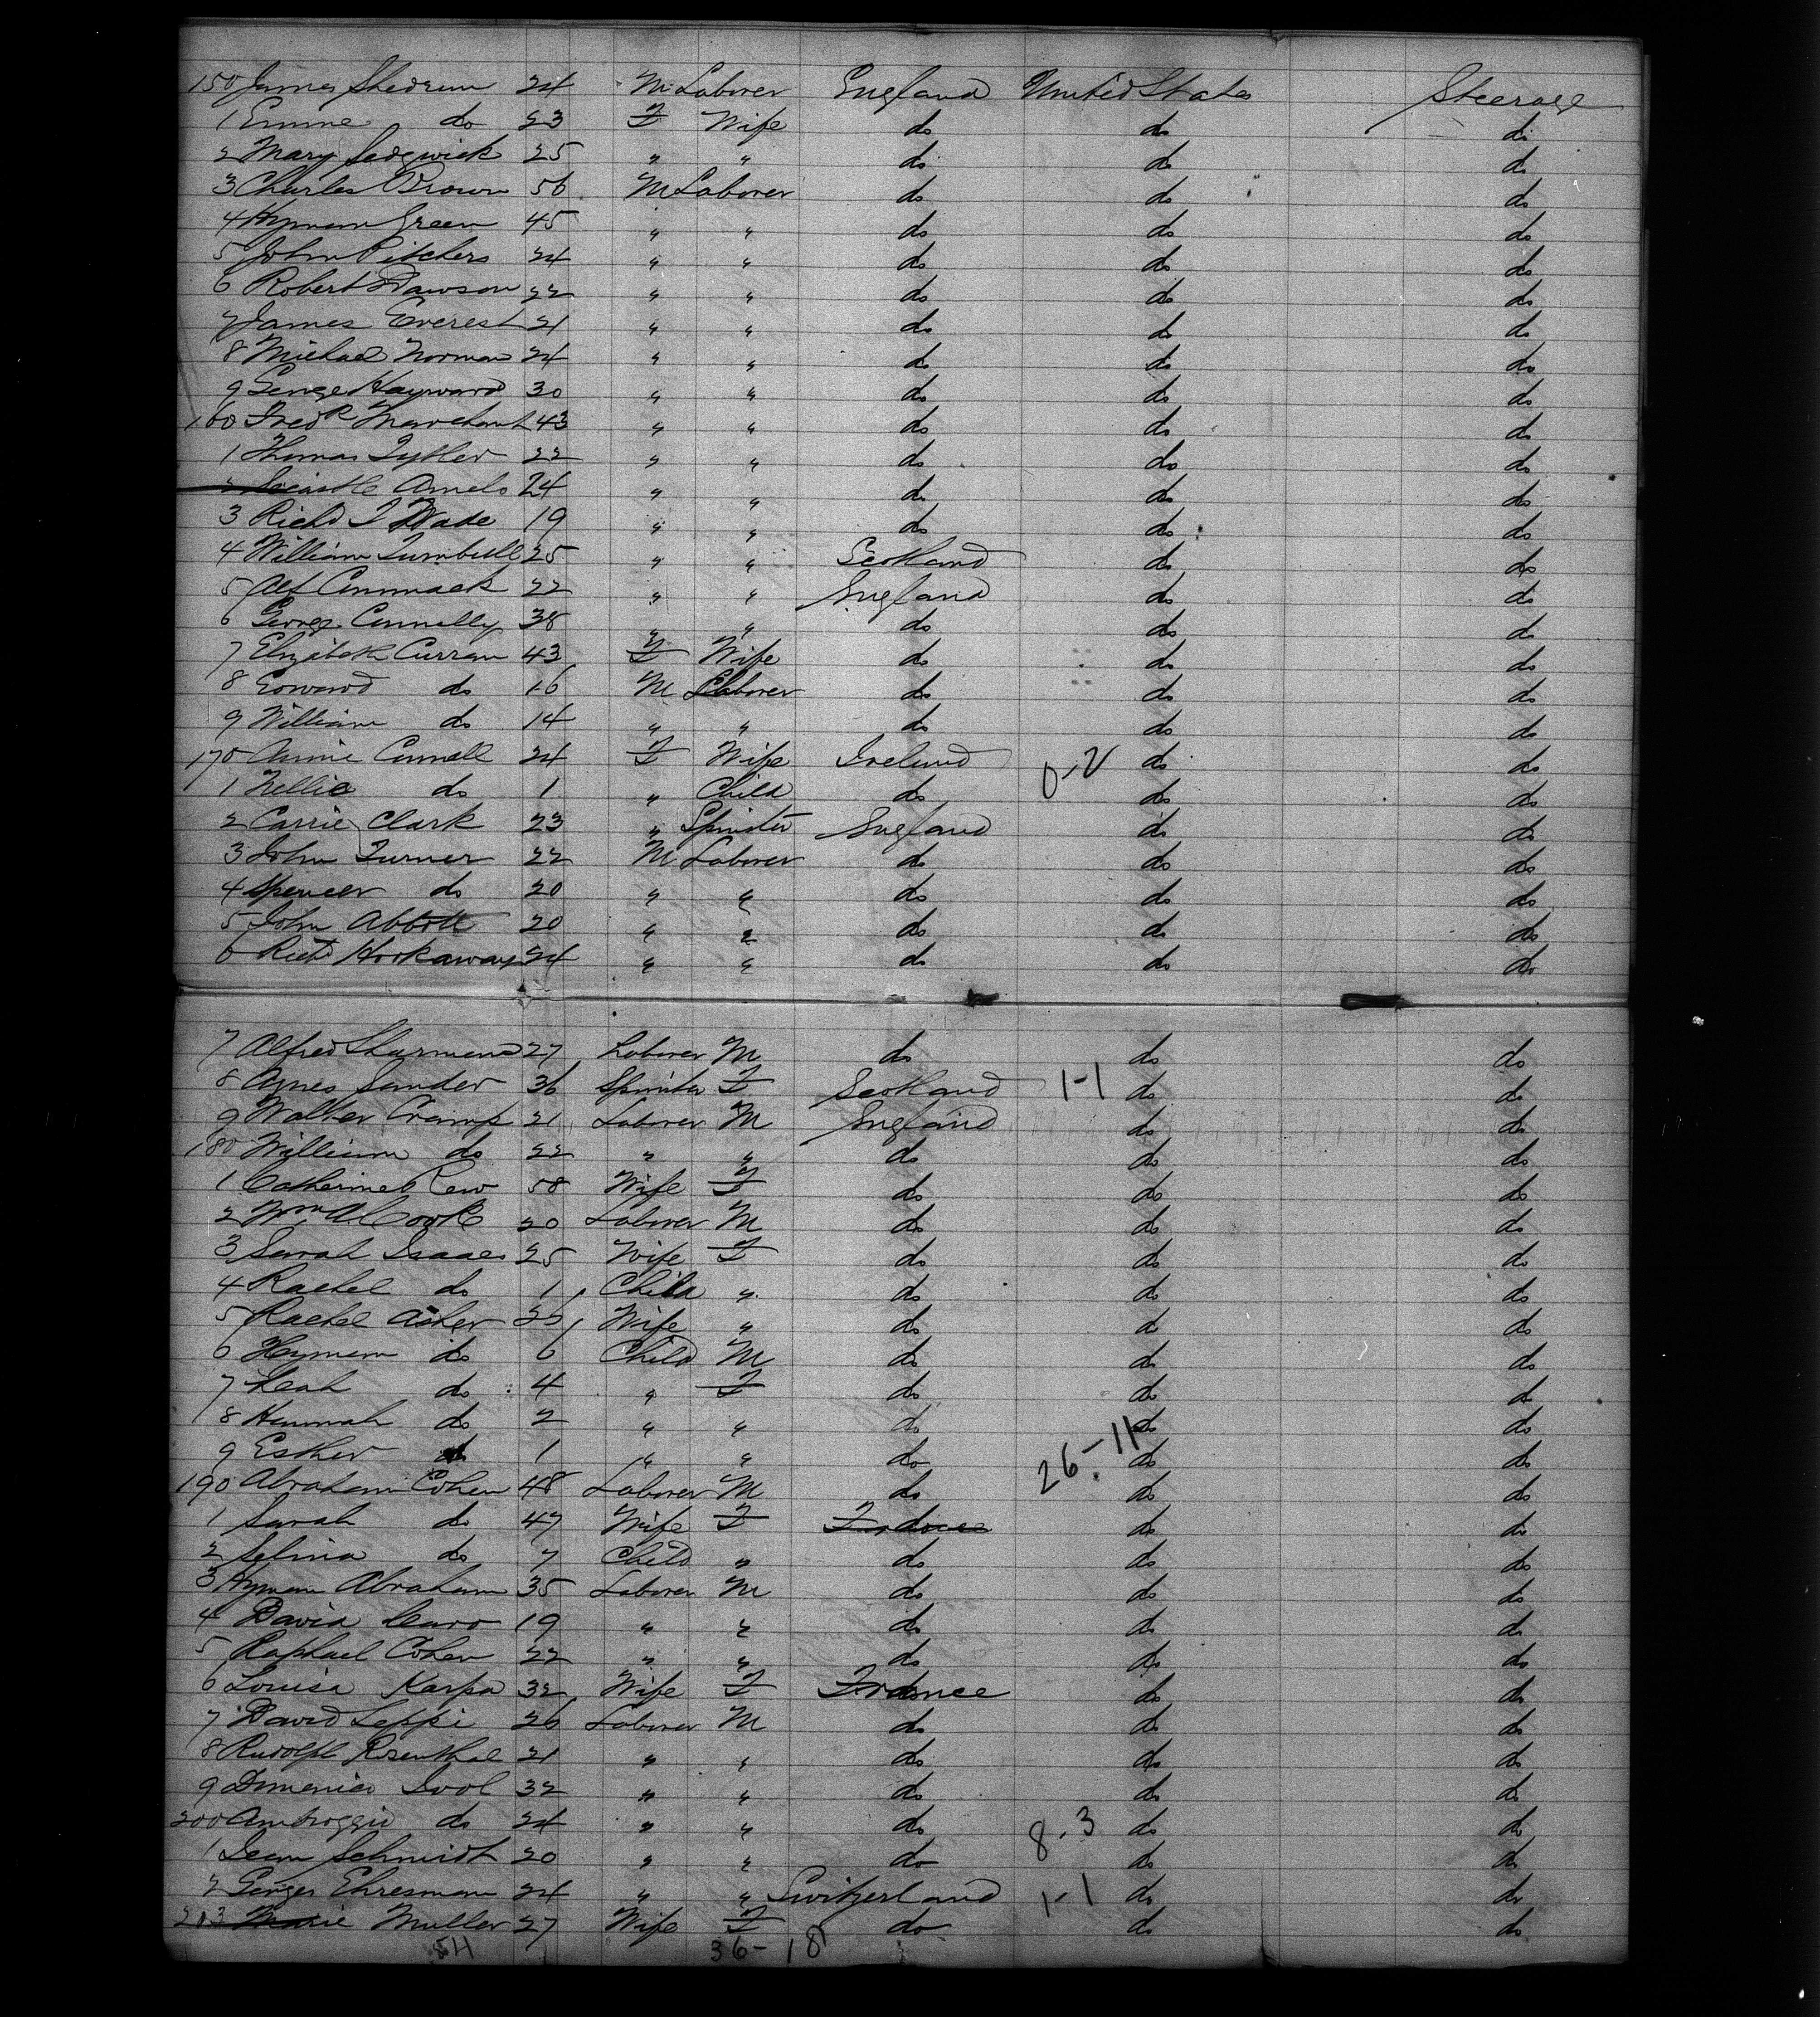 150 James 24 M Laborer England United States Steerage
1 Emme do 23 F Wife do do do
2 Mary Sedgwick 25 " " do do do
3 Charles Brown 56 M Laborer do do do
4 Hyman Green 45 " " do do do
5 John Pitchers 24 " " do do do
6 Robert Dawson 22 " " do do do
7 James Everest 21 " " do do do
8 Michael Norman 24 " " do do do
9 George Hayward 30 " " do do do
160 Fredk Marchant 43 " " do do do
1 Thomas Tytler 22 " " do do do
2 24 " " do do do
3 Richd T Wade 19 " " do do do
4 William Turnbull 25 " " Scotland do do
5 Alf Cammack 22 " " England do do
6 George Connelly 38 " " do do do
7 Elizabeth Curran 43 F Wife do do do
8 Edward do 16 M Laborer do do do
9 William do 14 " " do do do
170 Annie 24 F Wife Ireland 0-2 do do
1 Nellie do 1 " Child do do do
2 Carrie Clark 23 " Spinster England do do
3 John Turner 22 M Laborer do do do
4 Spencer do 20 " " do do do
5 John Abbott 20 " " do do do
6 Richd Hookaway 24 " " do do do
7 Alfred 27 Laborer M do do do
8 Agnes Sander 36 Spinster F Scotland 1-1 do do
9 Walter Cramp 21 Laborer M England do do
180 William do 22 " " do do do
1 Catherine Rew 58 Wife F do do do
2 Wm A Cook 20 Laborer M do do do
3 Sarah Isaacs 25 Wife F do do do
4 Rachel do 1 Child " do do do
5 Rachel Asher 26 Wife " do do do
6 Hyman do 6 Child M do do do
7 Leah do 4 " F do do do
8 Hannah do 2 " " do do do
9 Esther do 1 " " do 26-11 do do
190 Abraham Cohen 48 Laborer M do do do
1 Sarah do 47 Wife F do do do
2 Selina do 7 Child " do do do
3 Hyman Abraham 35 Laborer M do do do
4 David 19 " " do do do
5 Raphael Cohen 22 " " do do do
6 Louisa Karpa 32 Wife F France do do
7 David Leppi 26 Laborer M do do do
8 Rudolf Rosenthal 21 " " do do do
9 Domenico 32 " " do do do
200 Ambroggio do 24 " " do 8-3 do do
1 Schmidt 20 " " do do do
2 Georges Ehresman 24 " " Switzerland 1-1 do do
203 Marie Muller 27 Wife F do do do
54 36-18